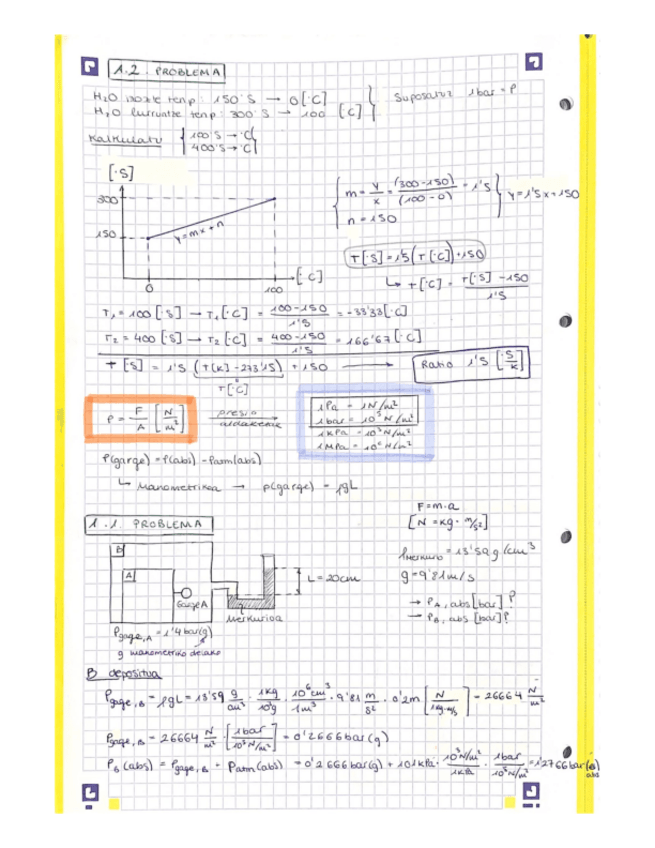 1.2. PROBLEMA
H₂O izozte tenp: 150°S → 0[°C]
H₂O lurruntze tenp: 300°S → 100 [°C]
Suposatuz 1bar = P
Kalkulatu 100°S → °C
400°S → °C
[°S]
300
150
y=mx+n
0
100
[°C]
m = y/x = (300-150)/(100-0) = 1'5
n = 150
y=1'5x+150
T[°S] = 1'5(T[°C])+150
↳ T[°C] = T[°S]-150 / 1'5
T₁ = 100[°S] → T₁[°C] = 100-150 / 1'5 = -33'33[°C]
T₂ = 400[°S] → T₂[°C] = 400-150 / 1'5 = 166'67[°C]
T[°S] = 1'5 (T[K]-273'15) + 150 → Ratio 1'5 [°S/K]
T[°C]
P = F/A [N/m²]
presio aldaketak
1Pa = 1N/m²
1bar = 10⁵ N/m²
1kPa = 10³ N/m²
1MPa = 10⁶ N/m²
P(gauge) = P(abs) - Patm(abs)
↳ Manometrikoa → p(gauge) = ρgL
1.1. PROBLEMA
F=m·a
[N = kg · m/s²]
B
A
Gauge A
L = 20cm
Merkurioa
Pgauge,A = 1'4 bar(g)
g manometriko delako
ρmerkurio = 13'59 g/cm³
g = 9'81 m/s
→ PA, abs [bar] ?
→ PB, abs [bar] ?
B depositua
Pgage,B = ρgL = 13'59 g/cm³ · 1kg/10³g · 10⁶cm³/1m³ · 9'81 m/s² · 0'2m [N / 1kg·m/s²] = 26664 N/m²
Pgage,B = 26664 N/m² · [1bar / 10⁵N/m²] = 0'2666bar(g)
PB(abs) = Pgage,B + Patm(abs) = 0'2666bar(g) + 101kPa · 10³N/m² / 1kPa · 1bar / 10⁵N/m² = 1'2766bar abs